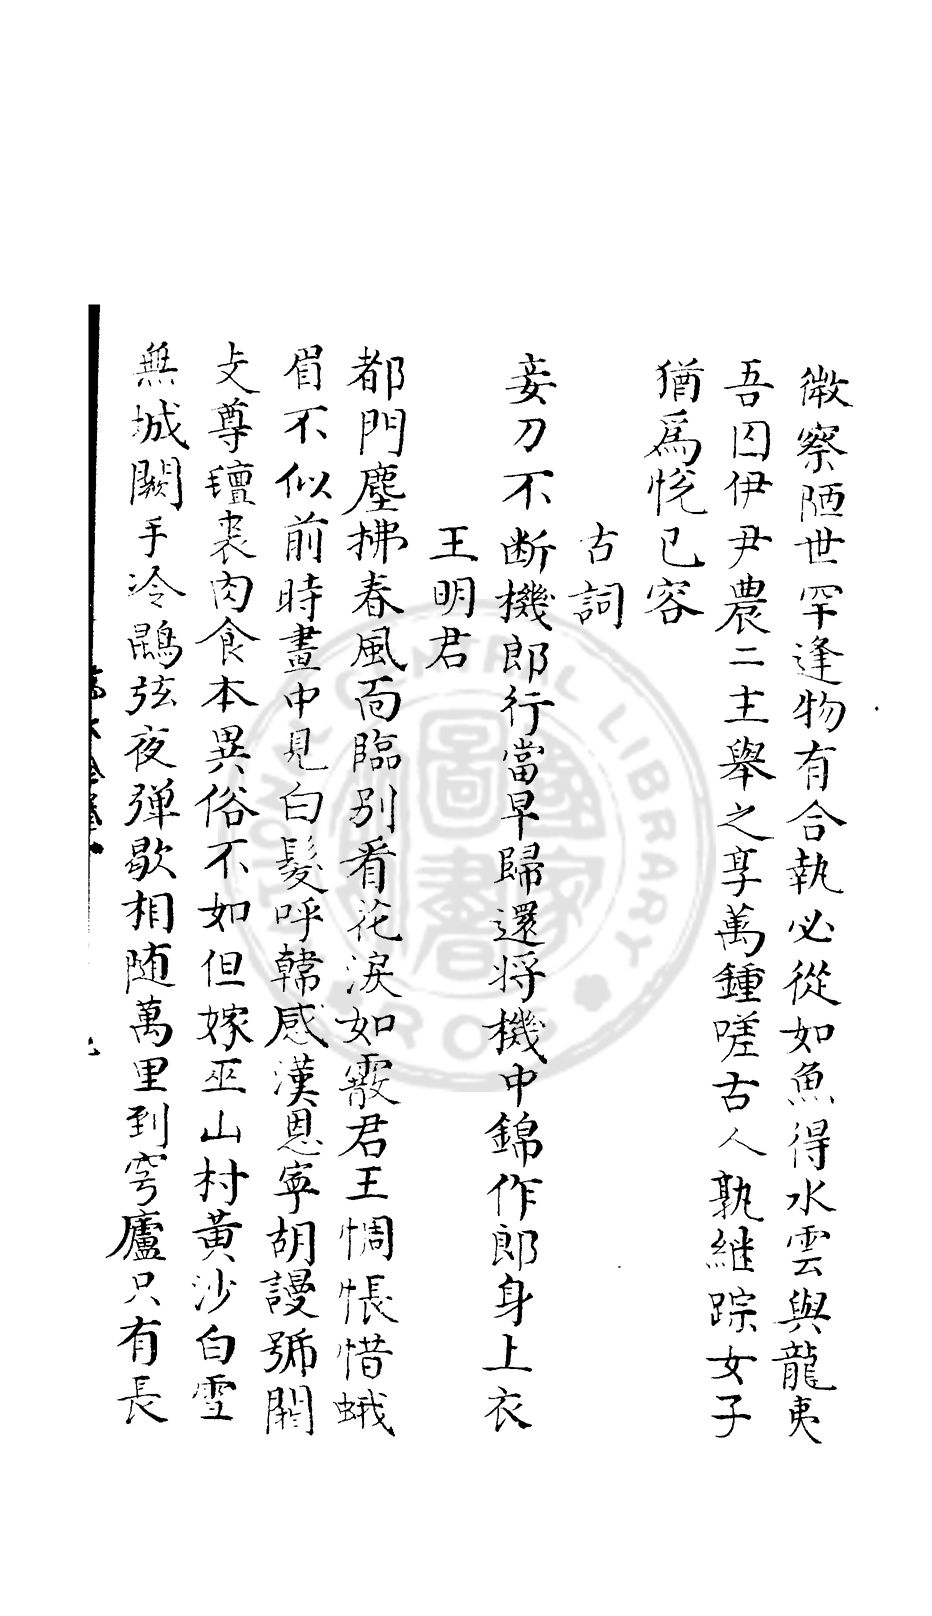 微察陋世罕逢物有合執必從如魚得水雲與龍夷
吾囚伊尹農二主舉之享萬鍾嗟古人孰継踪女子
猶為悅已容
古詞
妾刀不断機郎行當早歸還将機中錦作郎身上衣
王明君
都門塵拂春風面臨别看花淚如霰君王惆悵惜蛾
眉不似前時畫中見白髮呼韓感漢恩寧胡謾號閼
支尊氊裘肉食本異俗不如但嫁巫山村黃沙白雪
無城闕手冷鵾弦夜弹歇相随萬里到穹廬只有長
NATIONAL CENTRAL LIBRARY
國家圖書